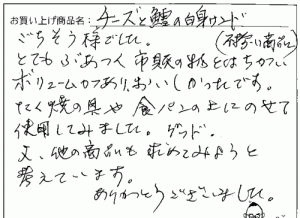 お買い上げ商品名：チーズと鱈の白身サンド
ごちそう様でした。
とてもぶあつく市販の物とはちがい
ボリュームがありおいしかったです。
たく焼の具や食パンの上にのせて
使用してみました。グッド。
又、他の商品も求めてみようと
考えています。
ありがとうございました。